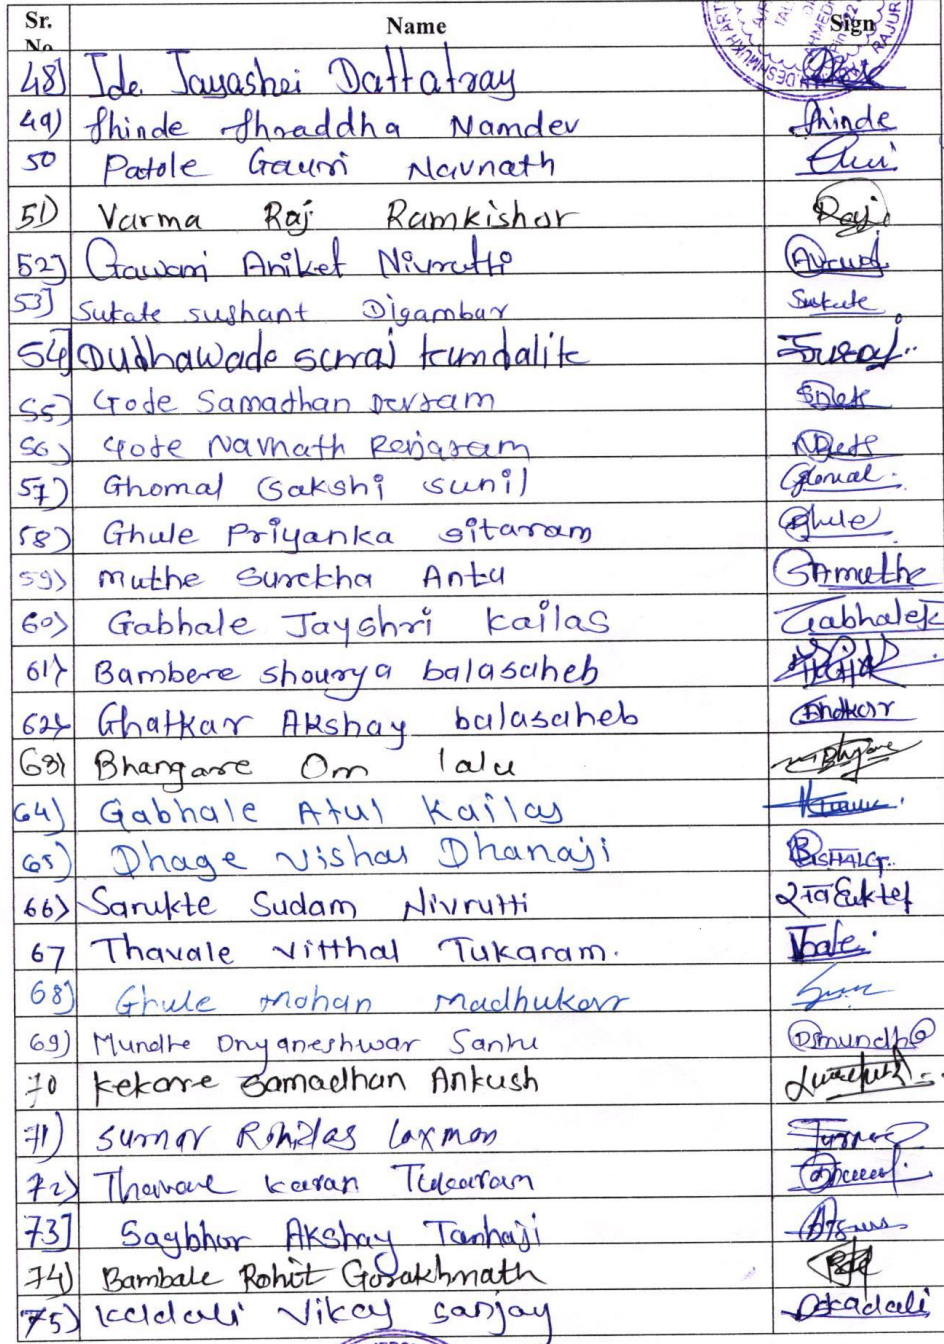 Sr. No Name Sign
48) Ide Jayashri Dattatray
49) Shinde Shraddha Namdev Shinde
50 Patole Gauri Navnath
51) Varma Raj Ramkishor Raj
52] Gawari Aniket Nivrutti
53] Sukate sushant Digambar Sukate
54] Dudhawade suraj kundalik
55) Gode Samadhan Devram
56) Gode Navnath Rajaram
57) Ghomal Sakshi Sunil Ghomal
58) Ghule Priyanka sitaram Ghule
59) muthe Surekha Antu SAmuthe
60) Gabhale Jayshri kailas Gabhale
61) Bambere shourya balasaheb
62) Ghatkar Akshay balasaheb
63) Bhangare Om lalu
64) Gabhale Atul Kailas
65) Dhage Vishal Dhanaji
66) Sarukte Sudam Nivrutti
67 Thavale Vitthal Tukaram.
68) Ghule Mohan Madhukar
69) Mundhe Dnyaneshwar Santu Dsmundhe
70 kekare Samadhan Ankush
71) Rohidas Laxman
72) Thavale karan Tukaram
73] Sagbhor Akshay Tanhaji
74) Bambale Rohit Gorakhnath
75) kadali Vikey sanjay kadali